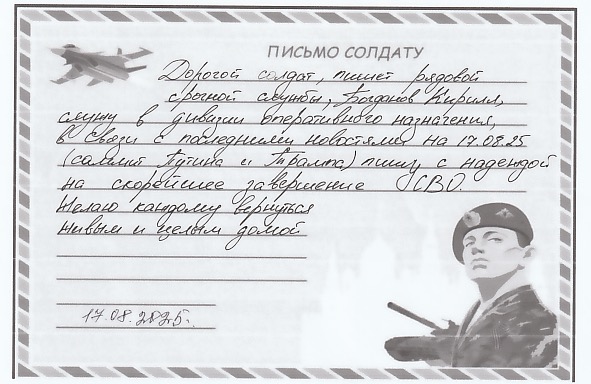 ПИСЬМО СОЛДАТУ
Дорогой солдат, пишет рядовой
срочной службы, Богданов Кирилл,
служу в дивизии оперативного назначения,
в связи с последними новостями на 17.08.25
(саммит Путина и Трампа) пишу с надеждой
на скорейшее завершение СВО.
Желаю каждому вернуться
живым и целым домой
17.08.2025г.